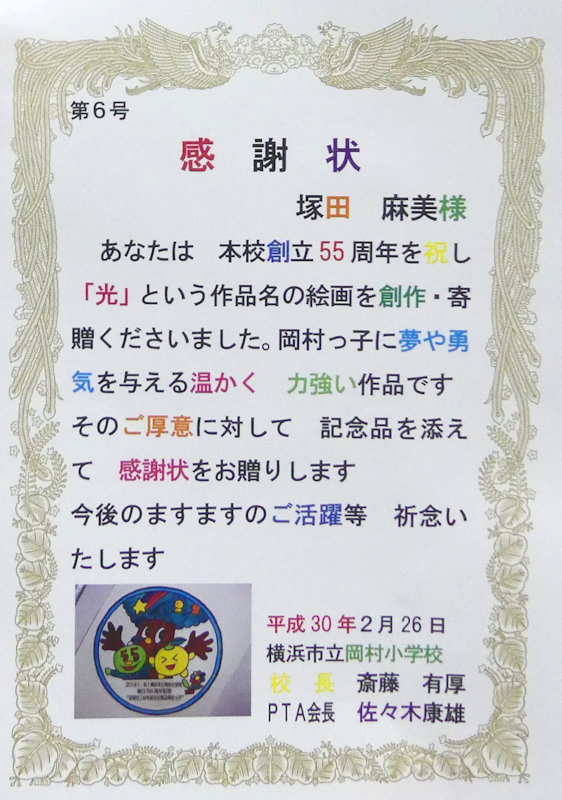 第6号
感 謝 状
塚田 麻美様
あなたは 本校創立55周年を祝し
「光」という作品名の絵画を創作・寄
贈くださいました。岡村っ子に夢や勇
気を与える温かく 力強い作品です
そのご厚意に対して 記念品を添え
て 感謝状をお贈りします
今後のますますのご活躍等 祈念い
たします
平成30年2月26日
横浜市立岡村小学校
校 長 斎藤 有厚
PTA会長 佐々木康雄
55